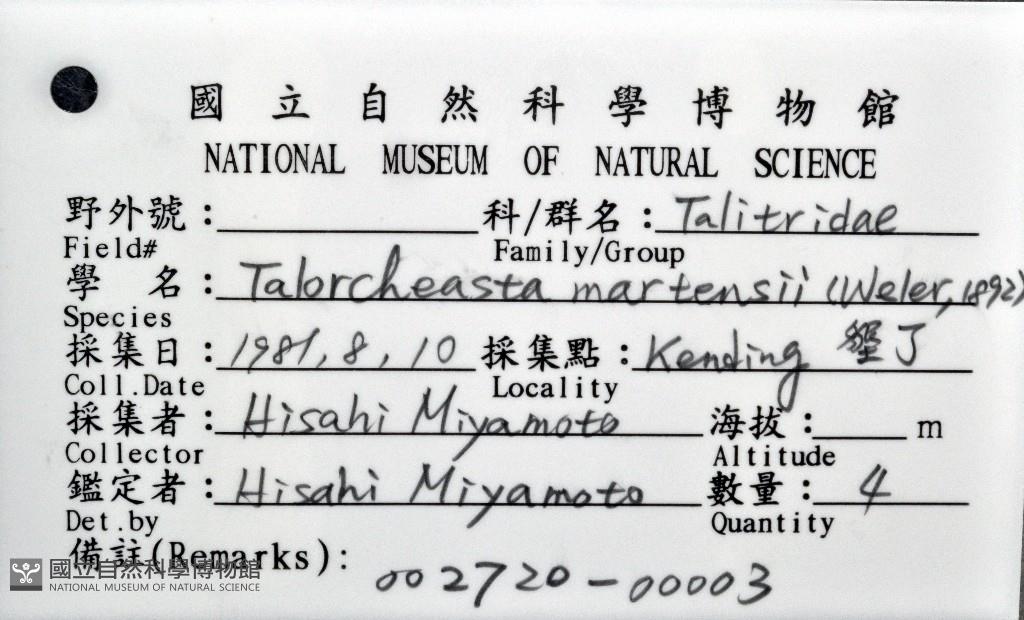 國立自然科學博物館
NATIONAL MUSEUM OF NATURAL SCIENCE
野外號： 科/群名：Talitridae
Field# Family/Group
學 名：Talorcheasta martensii (Weler, 1892)
Species
採集日：1981, 8, 10 採集點：Kending 墾丁
Coll.Date Locality
採集者：Hisahi Miyamoto 海拔： m
Collector Altitude
鑑定者：Hisahi Miyamoto 數量：4
Det.by Quantity
備註(Remarks)：
002720-00003
國立自然科學博物館
NATIONAL MUSEUM OF NATURAL SCIENCE